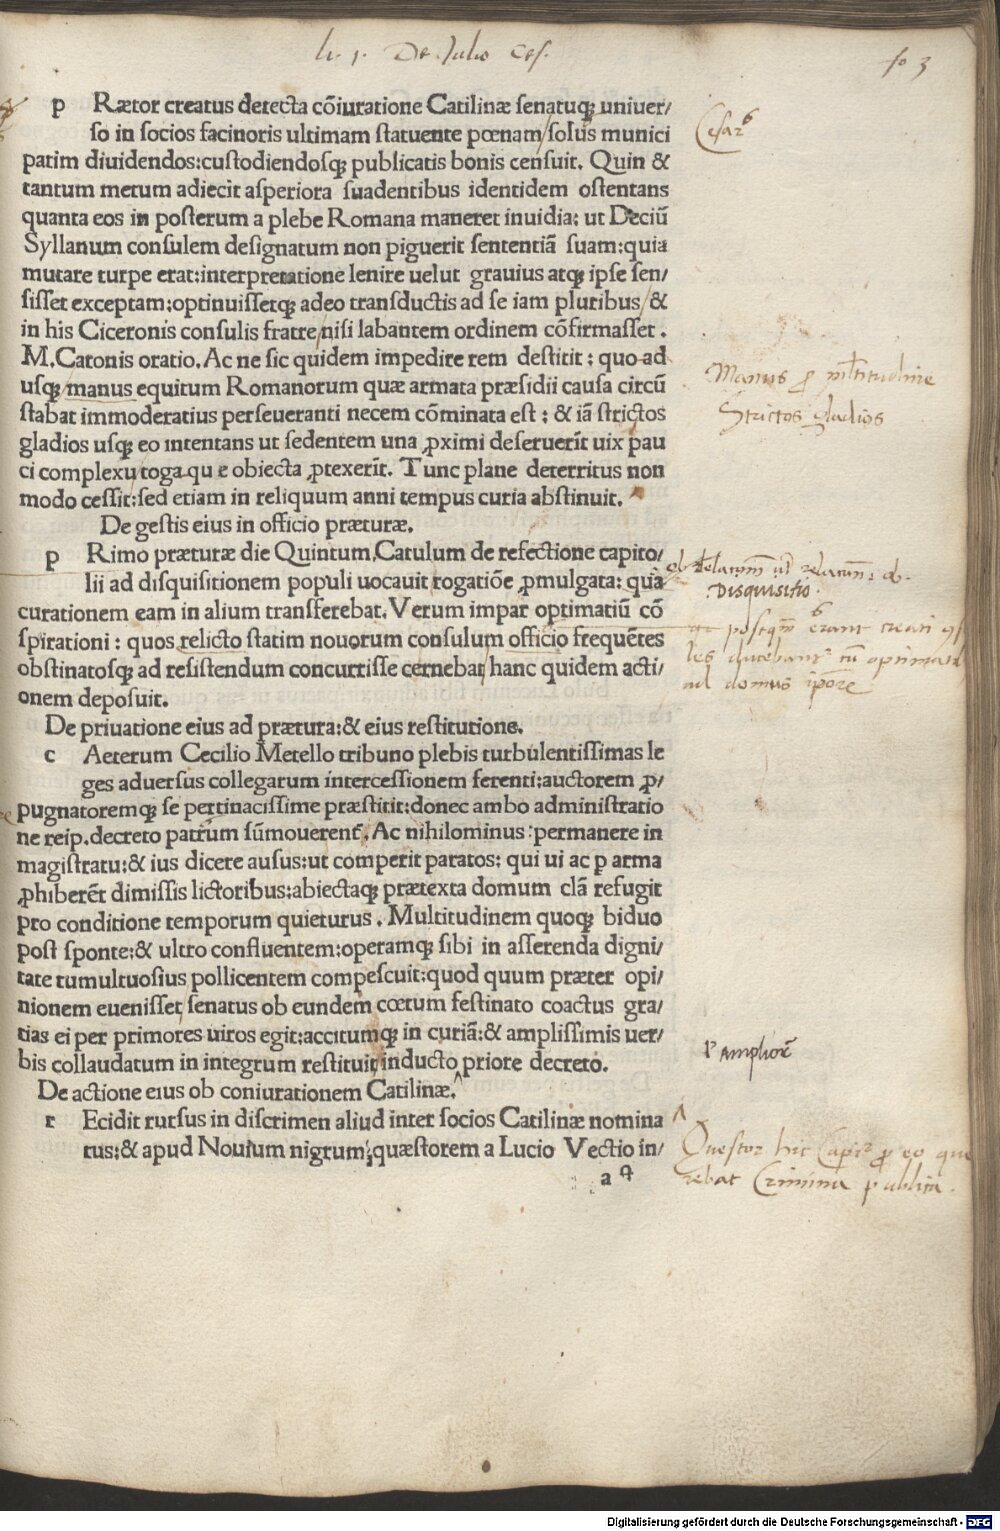 li. 1. De Julio Ces.
fo 3
p Rætor creatus detecta cõiuratione Catilinæ senatuq; uniuer/
so in socios facinoris ultimam statuente pœnam/solus munici
patim diuidendos:custodiendosq; publicatis bonis censuit. Quin &
tantum metum adiecit asperiora suadentibus identidem ostentans
quanta eos in posterum a plebe Romana maneret inuidia: ut Deciũ
Syllanum consulem designatum non piguerit sententiã suam:quia
mutare turpe erat:interpretatione lenire uelut grauius atq; ipse sen/
sisset exceptam:optinuissetq; adeo transductis ad se iam pluribus/&
in his Ciceronis consulis fratre/nisi labantem ordinem cõfirmasset.
M.Catonis oratio.Ac ne sic quidem impedire rem destitit: quo ad
usq; manus equitum Romanorum quæ armata præsidii causa circũ
stabat immoderatius perseueranti necem cõminata est: & iã strictos
gladios usq; eo intentans ut sedentem una ꝓximi deseruerĩt uix pau
ci complexu toga qu e obiecta ꝓtexerĩt. Tunc plane deterritus non
modo cessit:sed etiam in reliquum anni tempus curia abstinuit.
De gestis eius in officio præturæ.
p Rimo præturæ die Quintum.Catulum de refectione capito/
lii ad disquisitionem populi uocauit rogatiõe ꝓmulgata: qua
curationem eam in alium transferebat.Verum impar optimatiũ cõ
spirationi: quos relicto statim nouorum consulum officio frequẽtes
obstinatosq; ad resistendum concurrisse cernebat/hanc quidem acti/
onem deposuit.
De priuatione eius ad prætura:& eius restitutione.
c Aeterum Cecilio Metello tribuno plebis turbulentissimas le
ges aduersus collegarum intercessionem ferenti:auctorem ꝓ/
pugnatoremq; se pertinacissime præstitit:donec ambo administratio
ne reip.decreto patrum sũmouerent.Ac nihilominus permanere in
magistratu:& ius dicere ausus:ut comperit paratos: qui ui ac p arma
ꝓhiberẽt dimissis lictoribus:abiectaq; prætexta domum clã refugit
pro conditione temporum quieturus. Multitudinem quoq; biduo
post sponte:& ultro confluentem:operamq; sibi in asserenda digni/
tate tumultuosius pollicentem compescuit:quod quum præter opi/
nionem euenisset/senatus ob eundem cœtum festinato coactus gra/
tias ei per primores uiros egit:accitumq; in curiã:& amplissimis uer/
bis collaudatum in integrum restituit/inducto priore decreto.
De actione eius ob coniurationem Catilinæ.
r Ecidit rursus in discrimen aliud inter socios Catilinæ nomina
tus:& apud Nouium nigrum quæstorem a Lucio Vectio in/
a
Cesar
Manus ꝓ multitudine
Strictos gladios
Disquisitio.
ampliorẽ
Questor hic ꝓ eo que
rebat Crimina publica.
Digitalisierung gefördert durch die Deutsche Forschungsgemeinschaft - DFG